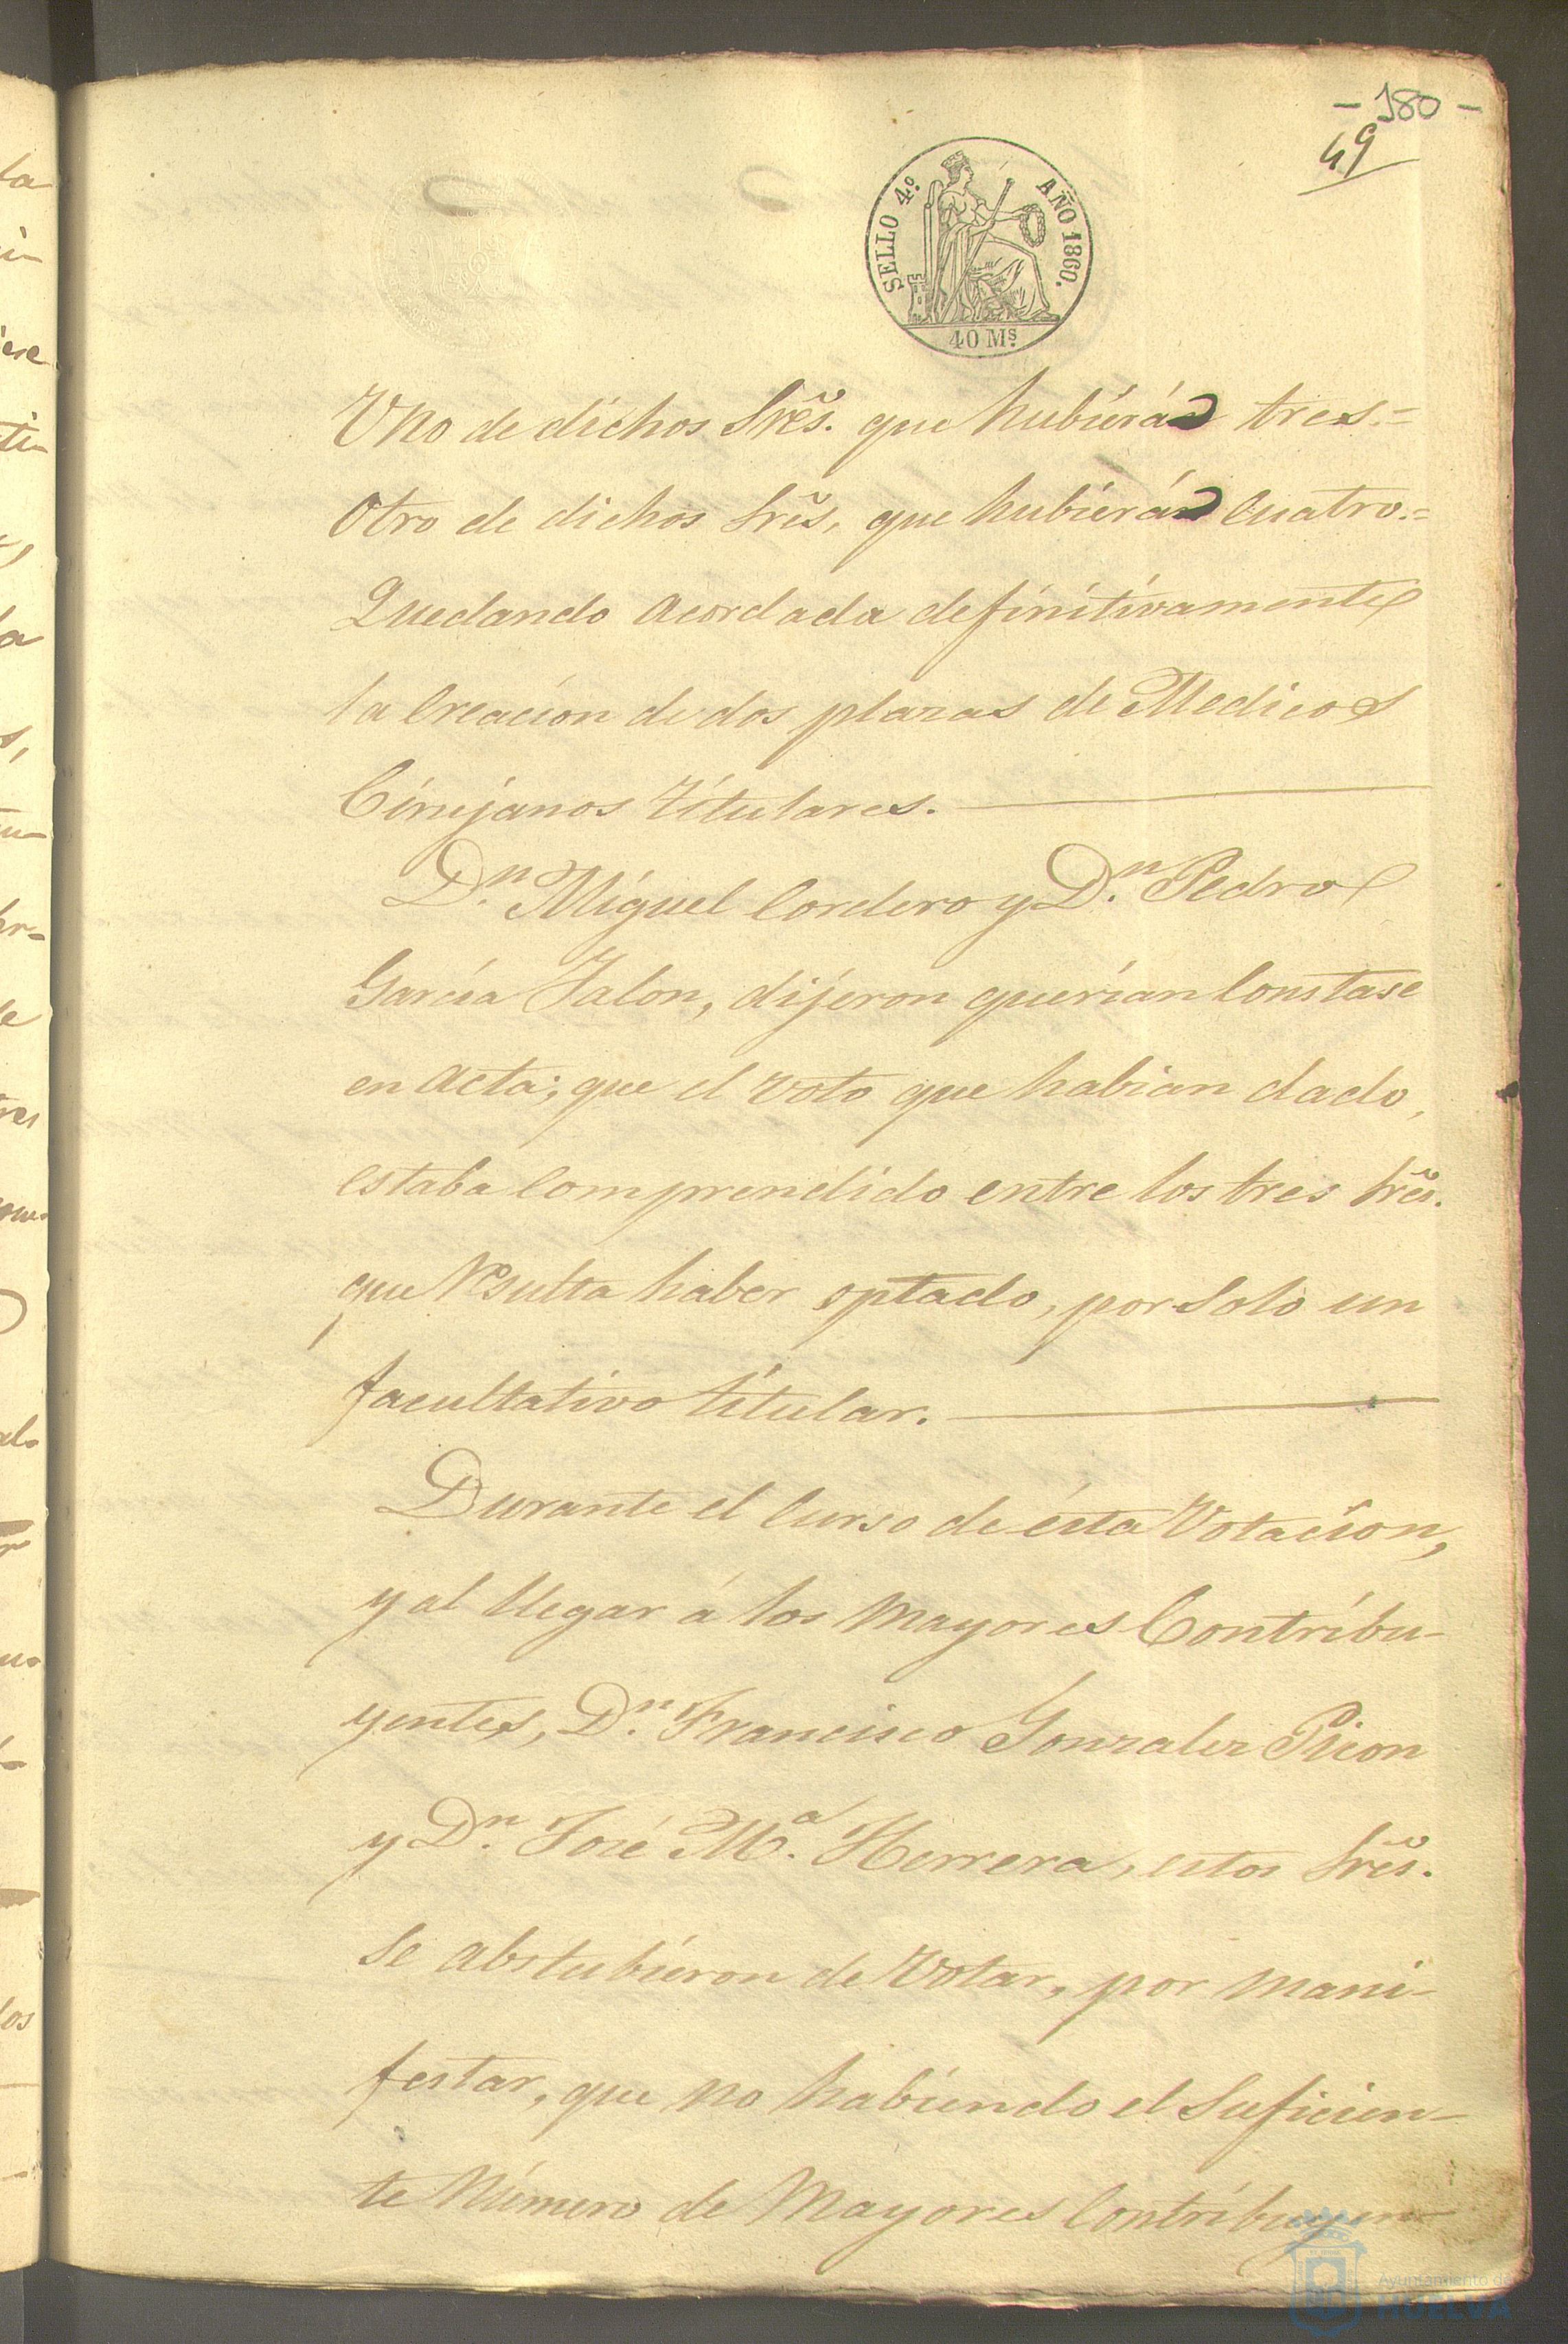 - 180 -
49
SELLO 4º AÑO 1860.
40 Ms
Uno de dichos Sres. que hubierán tres.=
Otro de dichos Sres, que hubierán Cuatro.=
Quedando acordada definitivamente
la Creacion de dos plazas de Medicos
Cirujanos titulares.
Dn. Miguel Cordero y Dn. Pedro
Garcia Jalon, dijeron querian Constase
en acta, que el voto que habian dado,
estaba Comprendido entre los tres Sres.
que Resulta haber optado, por Solo un
facultativo titular.
Durante el Curso de ésta Votacion,
y al llegar á los Mayores Contribu-
yentes, Dn. Francisco Gonzalez Picon
y Dn. José Ma. Herrera, estos Sres.
Se abstubieron de Votar, por mani-
festar, que no habiendo el Suficien-
te Número de Mayores Contribuyen-
Ayuntamiento de
HUELVA